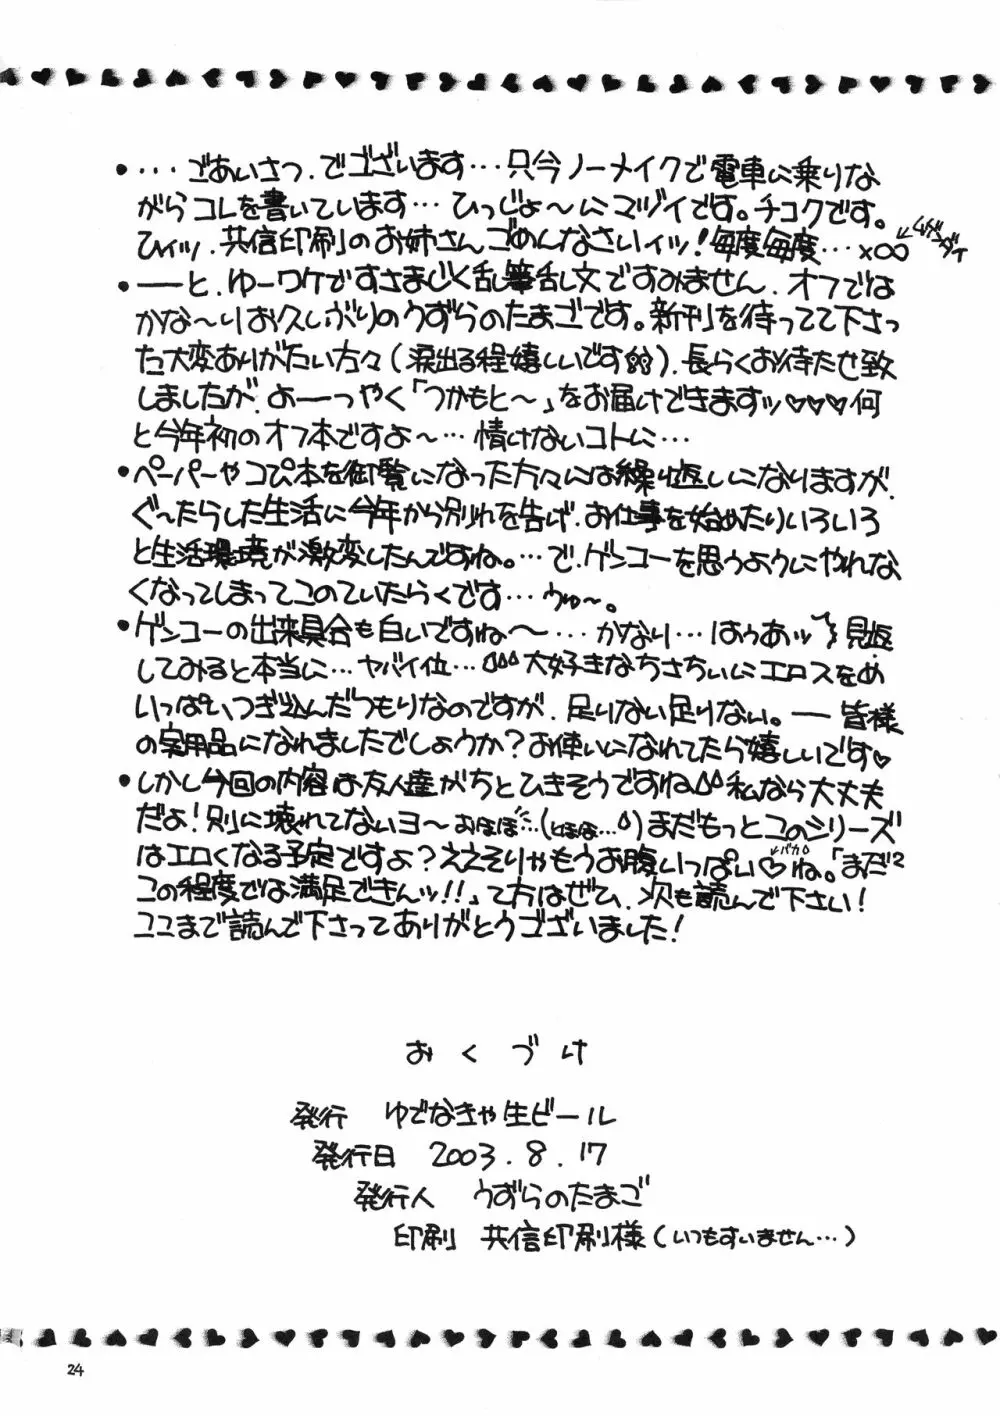 ・・・・ごあいさつ.でゴざいます・・・只今ノーメイクで電車に乗りな
がらコレを書いています・・・ひっじょ〜にマヅイです。チコクです。
ひィッ.共信印刷のお姉さんゴめんなさいィッ!毎度毎度・・・×∞
←ムゲンダイ
・──と、ゆーワケですさまじく乱筆乱文ですみません.オフでは
かな〜りお久しぶりのうずらのたまごです。新刊を待ってて下さっ
た大変ありがたい方々(涙出る程嬉しいです).長らくお待たせ致
しましたが、よーっつやく「つかもと〜」をお届けできますッ♡♡♡何
と今年初のオフ本ですよ〜・・・情けないコトに・・・
・ペーパーやコぴ本を御覧になった方々には繰り返しになりますが、
ぐ〜たらした生活に今年から別れを告げ、お仕事を始めたりいろいろ
と生活環境が激変したんですね。・・・で、ゲンコーを思うようにやれな
くなってしまってこのていたらくです・・・うゅ〜。
・ゲンコーの出来具合も白いですね〜・・・かなり・・・はぅあッ 見返
してみると本当に・・・ヤバイ位・・・大好きなちさちぃにエロスをめ
いっぱいつぎ込んだつもりなのですが、足りない足りない。──皆様
の実用品になれましたでしょうか?お使いになれてたら嬉しいです♡
・しかし今回の内容は友人達がちとひきそうですね 私なら大丈夫
だよ!別に壊れてないヨ〜おほほ・・・(とほほ・・・)まだもっとこのシリーズ
はエロくなる予定ですよ?ええそりゃもうお腹いっぱい♡ね。「まだ²
↑バカ
この程度では満足できんッ!!」て方はぜひ、次も読んで下さい!
ここまで読んで下さってありがとうゴざいました!
おくづけ
発行 ゆでなきゃ生ビール
発行日 2003.8.17
発行人 うずらのたまご
印刷 共信印刷様(いつもすいません・・・)
24